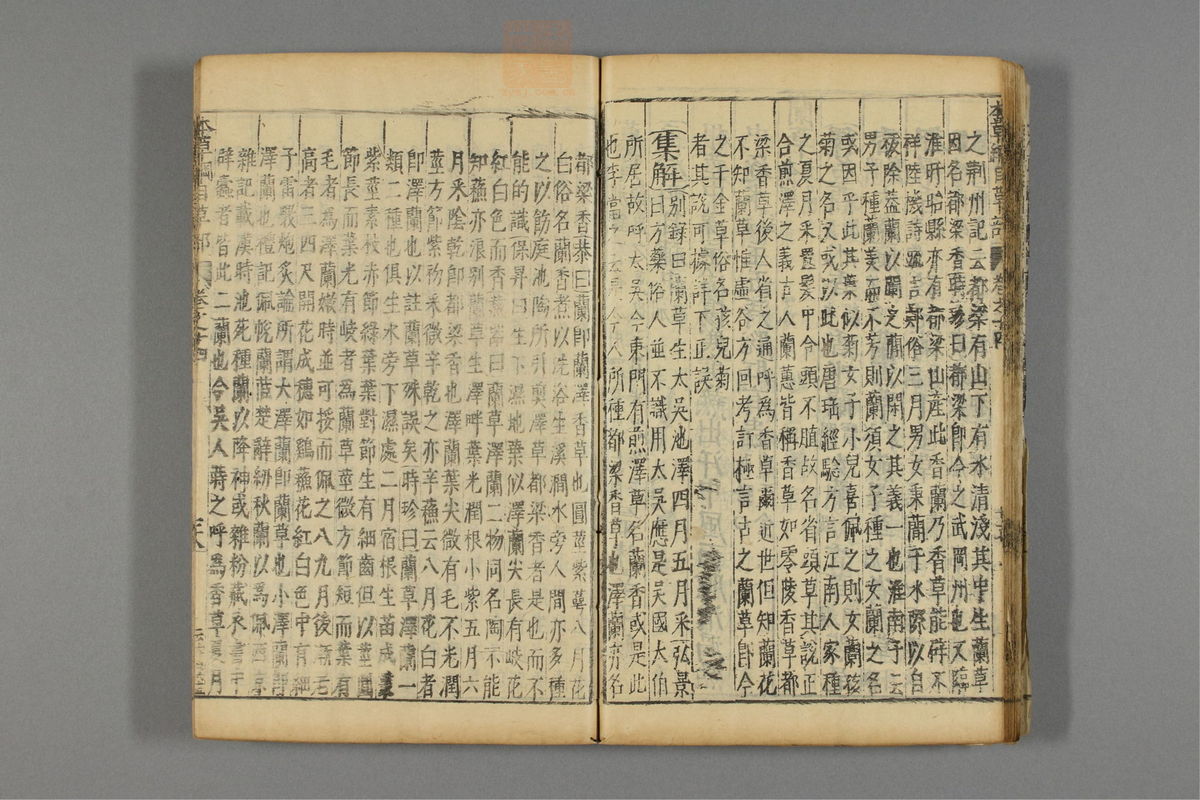 之荆州記云都梁有山下有水清淺其中生蘭草
因名都梁香時珍曰都梁即今之武岡州也又臨
淮盱眙縣亦有都梁山產此香蘭乃香草能辟不
祥陸璣詩疏言鄭俗三月男女秉蘭于水際以自
祓除蓋蘭以闌之蘭以閑之其義一也淮南子云
男子種蘭美而不芳則蘭須女子種之女蘭之名
或因乎此其葉似菊女子小兒喜佩之則女蘭孩
菊之名又或以此也唐瑤經驗方言江南人家種
之夏月采置髮中令頭不䐈故名省頭草其說正
合煎澤之義言人蘭蕙皆稱香草如零陵香草都
梁香草後人省之通呼為香草爾近世但知蘭花
不知蘭草惟虛谷方回考訂極言古之蘭草即今
之千金草俗名孩兒菊
者其說可據詳下正誤
集解別錄曰蘭草生太吳池澤四月五月采弘景
曰方藥俗人並不識用太吳應是吳國太伯
所居故呼太吳今東門有煎澤草名蘭香或是此
也李 今人所種都梁香草也澤蘭亦名
都梁香恭曰蘭即蘭澤香草也圓莖紫蕚八月花
白俗名蘭香煮以洗浴生溪澗水旁人間亦多種
之以飾庭池陶所引煎澤草都梁香者是也而不
能的識保昇曰生下濕地葉似澤蘭尖長有岐花
紅白色而香 曰蘭草澤蘭二物同名陶不能
知蘇亦浪別蘭草生澤畔葉光潤根小紫五月六
月采陰乾即都梁香也澤蘭葉尖微有毛不光潤
莖方節紫初采微辛乾之亦辛蘇云八月花白者
即澤蘭也以註蘭草殊誤矣時珍曰蘭草澤蘭一
類二種也俱生水旁下濕處二月宿根生苗成叢
紫莖素枝赤節綠葉葉對節生有細齒但以莖圓
節長而葉光有岐者為蘭草莖微方節短而葉有
毛者為澤蘭嫩時並可挼而佩之八九月後漸老
高者三四尺開花成穗如鷄蘇花紅白色中有細
子雷斅炮炙論所謂大澤蘭即蘭草也小澤蘭即
澤蘭也禮記佩帨蘭茝楚辭紉秋蘭以為佩西京
雜記載漢時池苑種蘭以降神或雜粉藏衣書中
辟蠹者皆此二蘭也今吳人蒔之呼為香草夏月
本草綱目草部
卷之十四